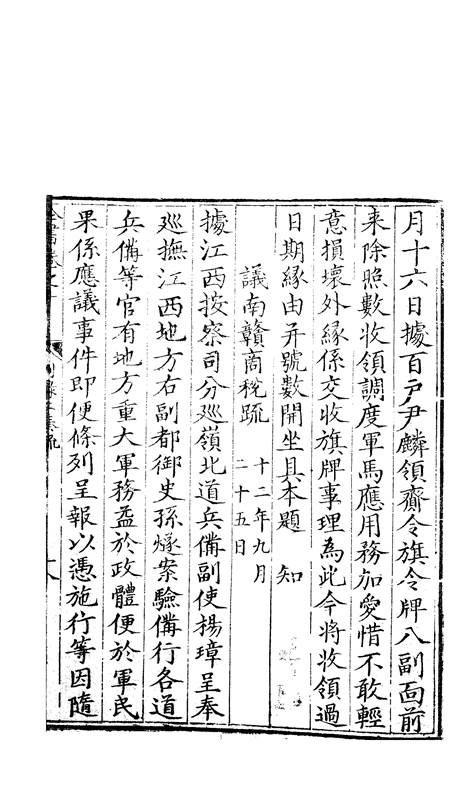 月十六日據百戸尹麟領齎令旗令牌八副面前
来除照數收領調度軍馬應用務加愛惜不敢輕
意損壞外緣係交收旗牌事理為此今將收領過
日期緣由并號數開坐具本題 知
議南贛商稅疏 十二年九月
二十五日
據江西按察司分廵嶺北道兵備副使楊璋呈奉
廵撫江西地方右副都御史孫燧案驗備行各道
兵備等官有地方重大軍務益於政體便於軍民
果係應議事件即便條列呈報以憑施行等因隨